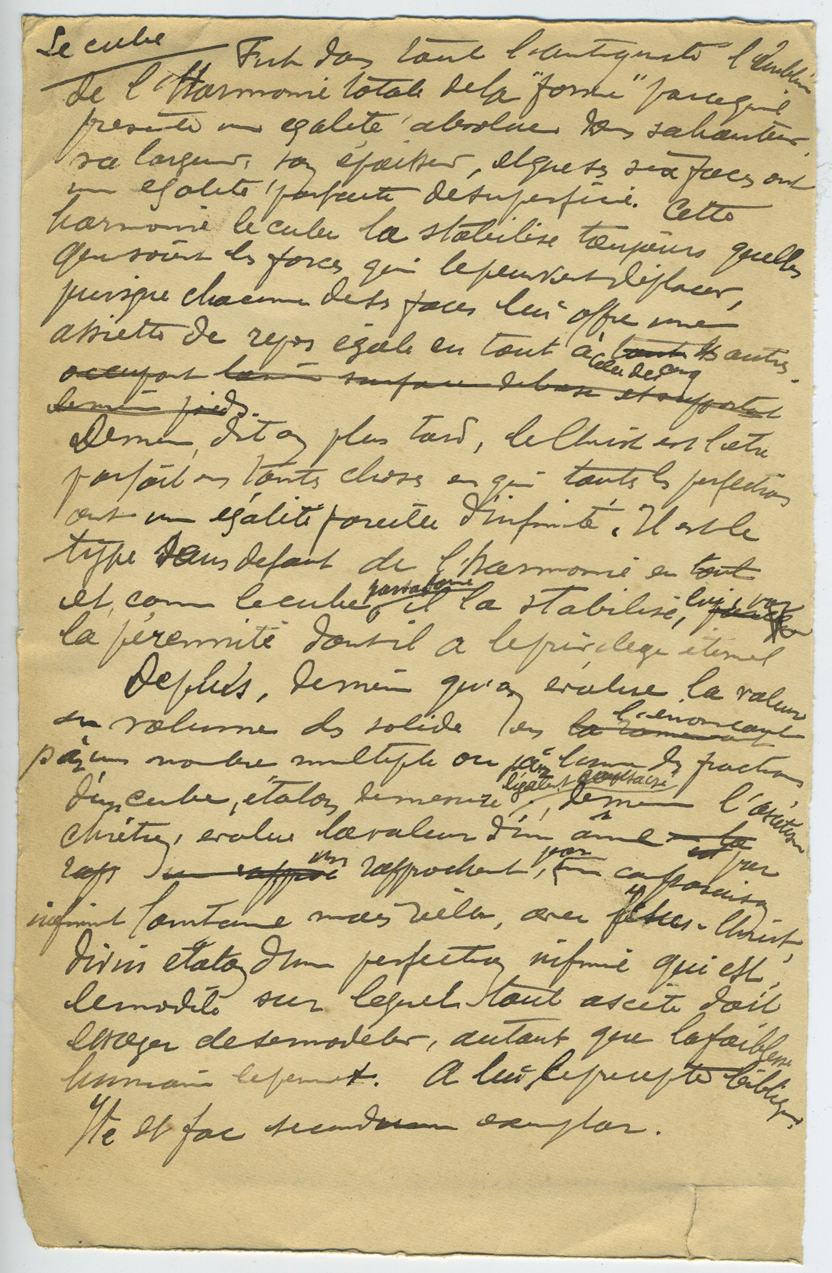 Le cube Fut dans toute l'antiquité l'emblème
de l'Harmonie totale de la "forme" parcequ'il
présente une égalité absolue dans sa hauteur,
sa largeur, son épaisseur, et que ses six faces ont
une égalité parfaite de superficie. Cette
harmonie le cube la stabilise toujours quelles
que soient les forces qui le peuvent déplacer,
puisque chacune de ses faces lui offre une
assiette de repos égale en tout à tout des autres.
celle des cinq
occupant la même surface de base et supportant
le même poids.
De même, dit on plus tard, le Christ est l'être
parfait en toutes choses en qui toutes les perfections
ont une égalité d'infinité. Il est le
type sans défaut de l'harmonie en tout
et, comme le cube, il la stabilise, lui, par
la pérennité dont il a le privilège éternel
De plus, de même qu'on évalue la valeur
en volume des solides en l'énonçant
par un nombre multiple ou par l'une des fractions
d'un cube, étalon de mesure, de même l'ascétisme
chrétien, évalue la valeur d'une âme par
rap un rapproc un rapprochement, par une comparaison
infiniment lointaine mais réelle, avec Jésus-Christ,
divin étalon d'une perfection infinie qui est
le modèle sur lequel tout ascète doit
essayer de se modeler, autant que la faiblesse
humaine le permet. A lui, le précepte biblique
Ite et fac secundum exemplar.